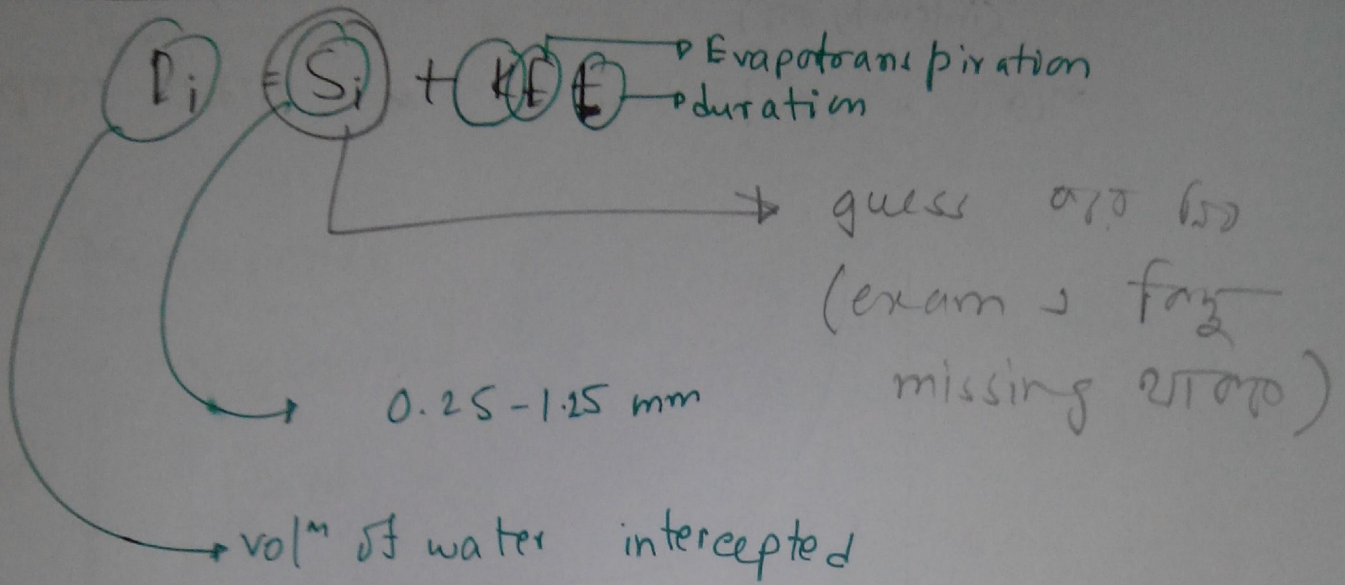 Ii = Si + KE t → Evapotranspiration
→ duration
→ guess করে নিব
(exam এ কিছু
missing থাকলে)
0.25-1.25 mm
volᵐ of water intercepted